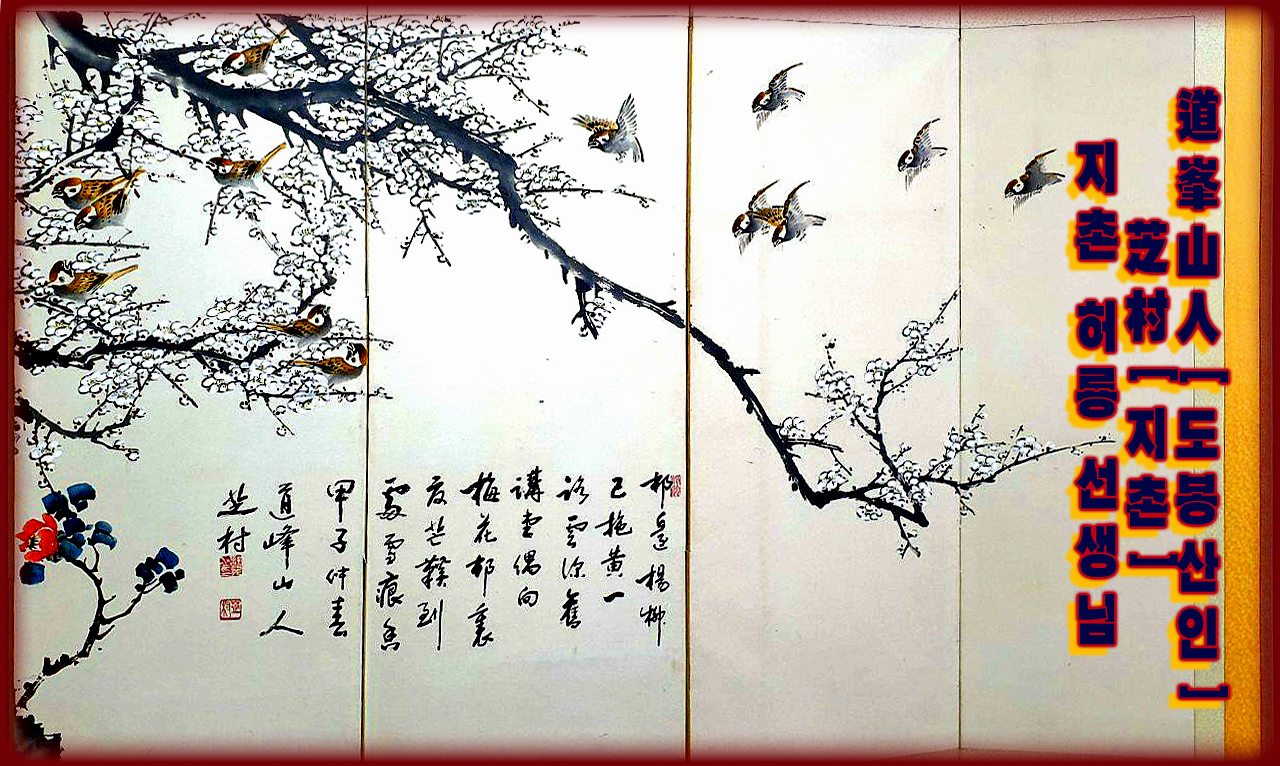 道峯山人[도봉산인]
芝村[지촌]
지촌 허룡 선생님
邨邊楊柳
已拖黃一
路雲深舊
講堂偶向
梅花邨裏
度芒鞵到
處雪痕香
甲子仲春
道峰山人
芝村